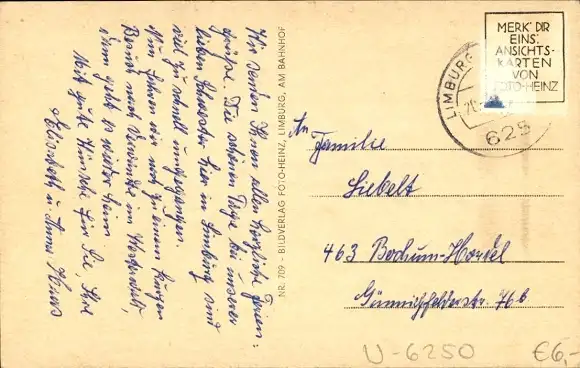 Wir senden Ihnen allen herzliche Ferien-
grüße. Die schönen Tage bei unserer
lieben Schwester hier in Limburg sind
viel zu schnell umgegangen.
Nun fahren wir noch zu einem kurzen
Besuch nach Verwandte im
dann geht es wieder heim.
Mit gute Wünsche für Sie, Ihre
Elisabeth u. Anna
NR. 709 - BILDVERLAG FOTO-HEINZ, LIMBURG, AM BAHNHOF
MERK' DIR
EINS:
ANSICHTS-
KARTEN
VON
FOTO-HEINZ
LIMBURG
625
An
Familie
Siebelt
463 Bochum-Hordel
Günnigfelderstr. 76b
U-6250
€6,-